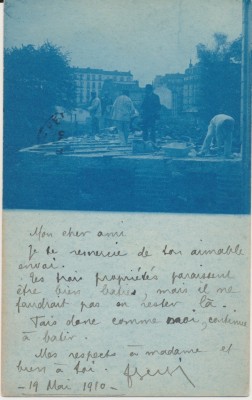 Mon cher ami
Je te remercie de ton aimable
envoi.
Tes trois propriétés paraissent
être bien baties, mais il ne
faudrait pas en rester là.
Fais donc comme moi, continue
à batir.
Mes respects à madame et
bien à toi.
- 19 Mai 1910 -